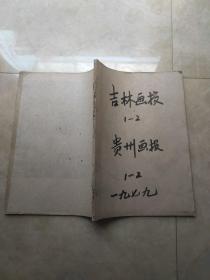 吉林画报
1-2
贵州画报
1-2
一九七九